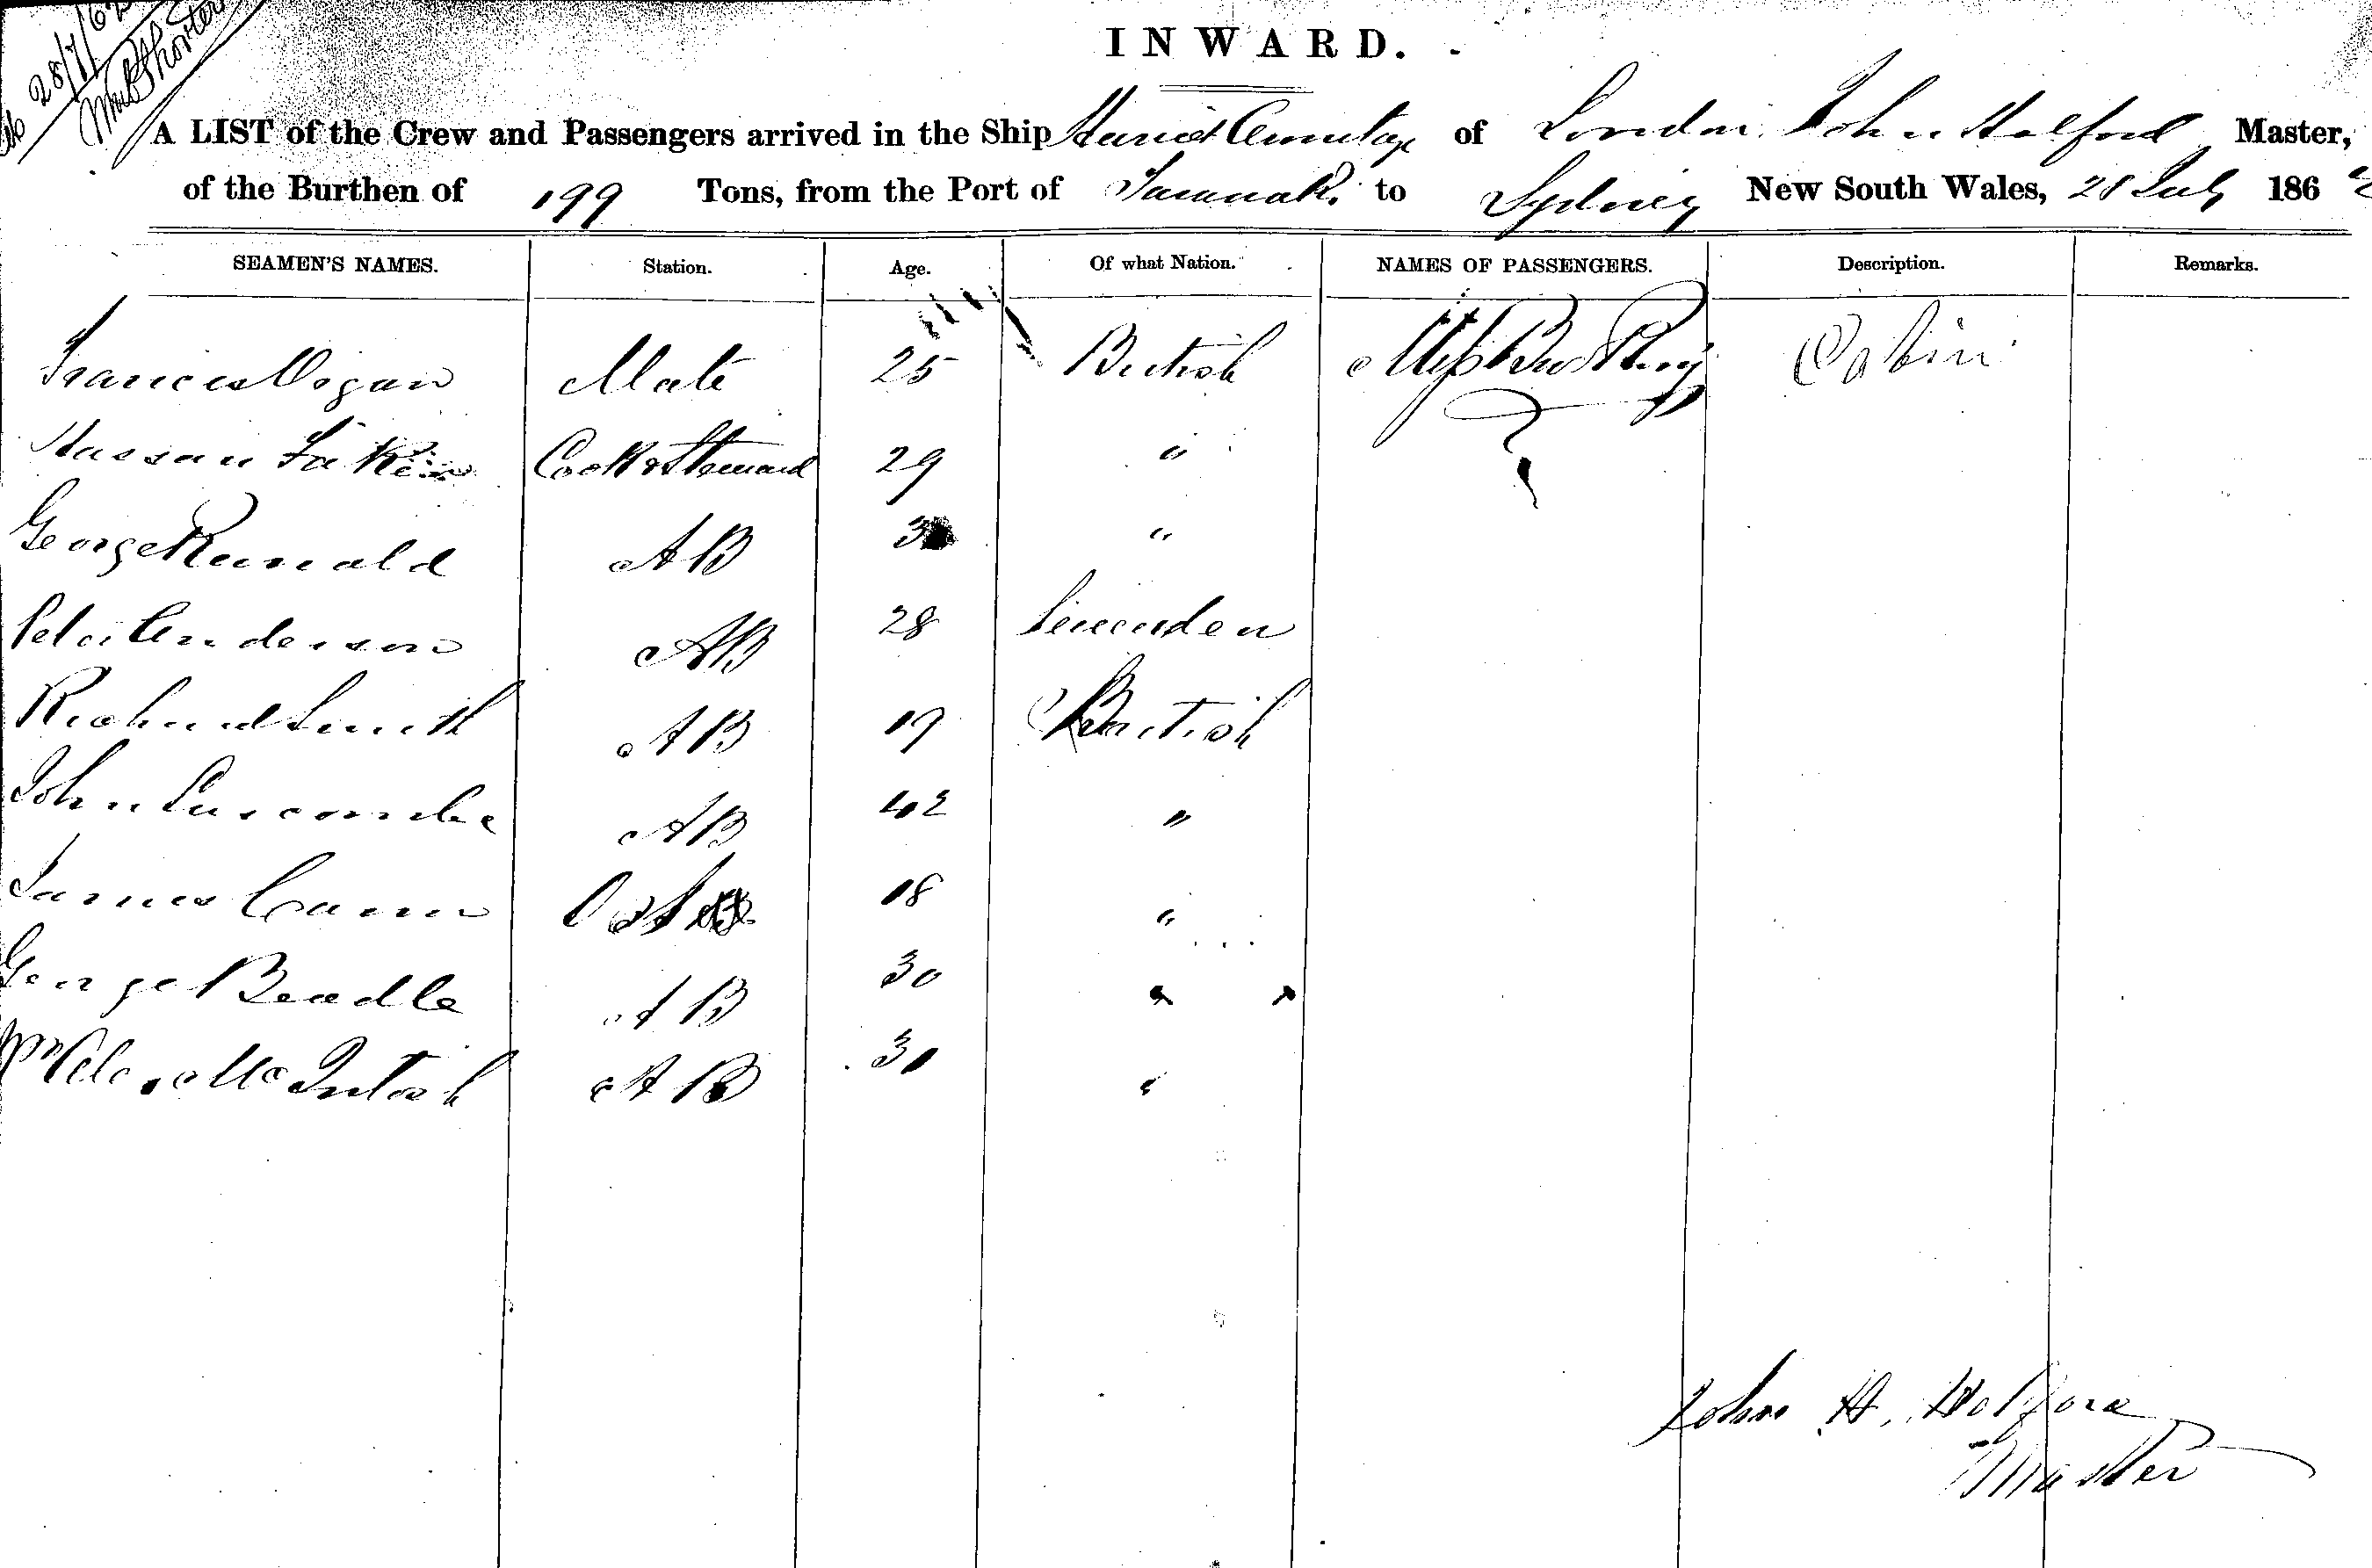 28/7/62
INWARD.
A LIST of the Crew and Passengers arrived in the Ship Harriet Armitage of London John Halford Master,
of the Burthen of 199 Tons, from the Port of Taranaki to Sydney New South Wales, 28 July 1862
SEAMEN'S NAMES. Station. Age. Of what Nation. NAMES OF PASSENGERS. Description. Remarks.
Francis Dogan Mate 25 British Miss Cabin
Hassan Cook & Steward 29 "
George Runald AB "
Peter Anderson AB 28
Richard Smith AB 19 British
John Luscombe AB 42 "
James Cann 18 "
George Beadle AB 30 "
Alex. McIntosh AB 30 "
John H. Halford
Master